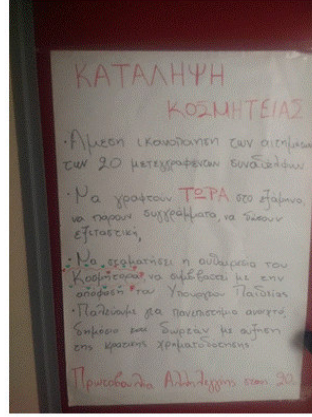 ΚΑΤΑΛΗΨΗ
ΚΟΣΜΗΤΕΙΑΣ
·Άμεση ικανοποίηση των αιτημάτων
των 20 μετεγγραφέντων συναδέλφων
·Να γραφτούν ΤΩΡΑ στο εξάμηνο,
να πάρουν συγγράμματα, να δώσουν
εξεταστική,
·Να σταματήσει η αυθαιρεσία του
Κοσμήτορα, να συμβιβαστεί με την
απόφαση του Υπουργείου Παιδείας
·Παλεύουμε για πανεπιστήμιο ανοιχτό,
δημόσιο και δωρεάν με αύξηση
της κρατικής χρηματοδότησης.
Πρωτοβουλία Αλληλεγγύης στους 20